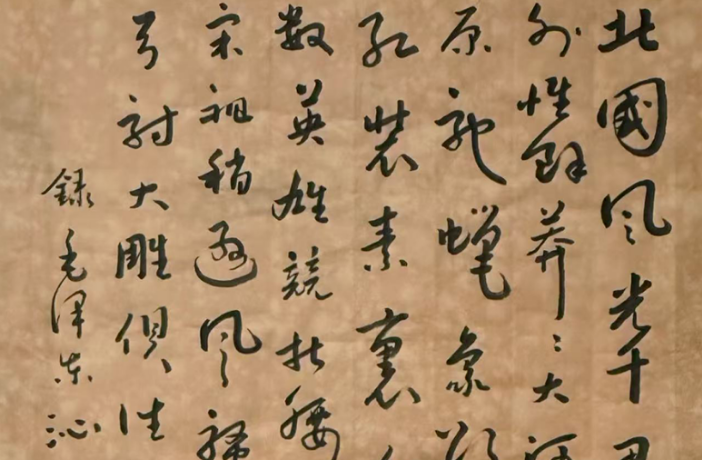 北國風光千
外惟餘莽〻大河
原馳蠟象欲
紅裝素裹
數英雄競折腰
宋祖稍遜風騷
弓射大雕俱往
錄毛澤東沁